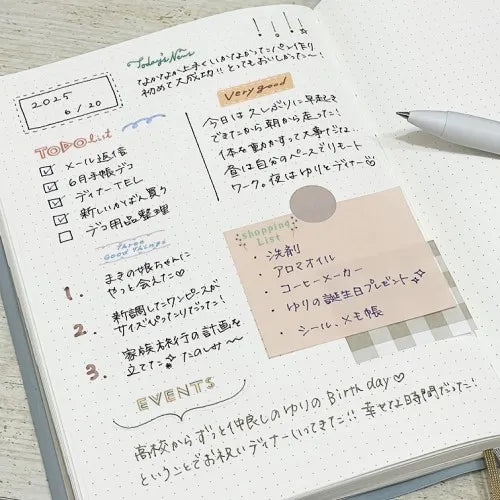 Today's News
なかなか上手くいかなかったパン作り
初めて大成功!!とってもおいしかった〜!
2025
6/20
TODO list
メール返信
6月手帳デコ
ディナーTEL
新しいかばん買う
デコ用品整理
Very good
今日は久しぶりに早起き
できたから朝から走った!
体を動かすって大事だね..
昼は自分のペースでリモート
ワーク。夜はゆりとディナー♡
Three
Good Things
1. まきの娘ちゃんに
やっと会えた♡
2. 新調したワンピースが
サイズぴったりだった!
3. 家族旅行の計画を
立てた たのしみ〜
shopping
List
・ 洗剤
・ アロマオイル
・ コーヒーメーカー
・ ゆりの誕生日プレゼント
・ シール、メモ帳
EVENTS
高校からずっと仲良しのゆりのBirthday♡
ということでお祝いディナーいってきた!!幸せな時間だった!